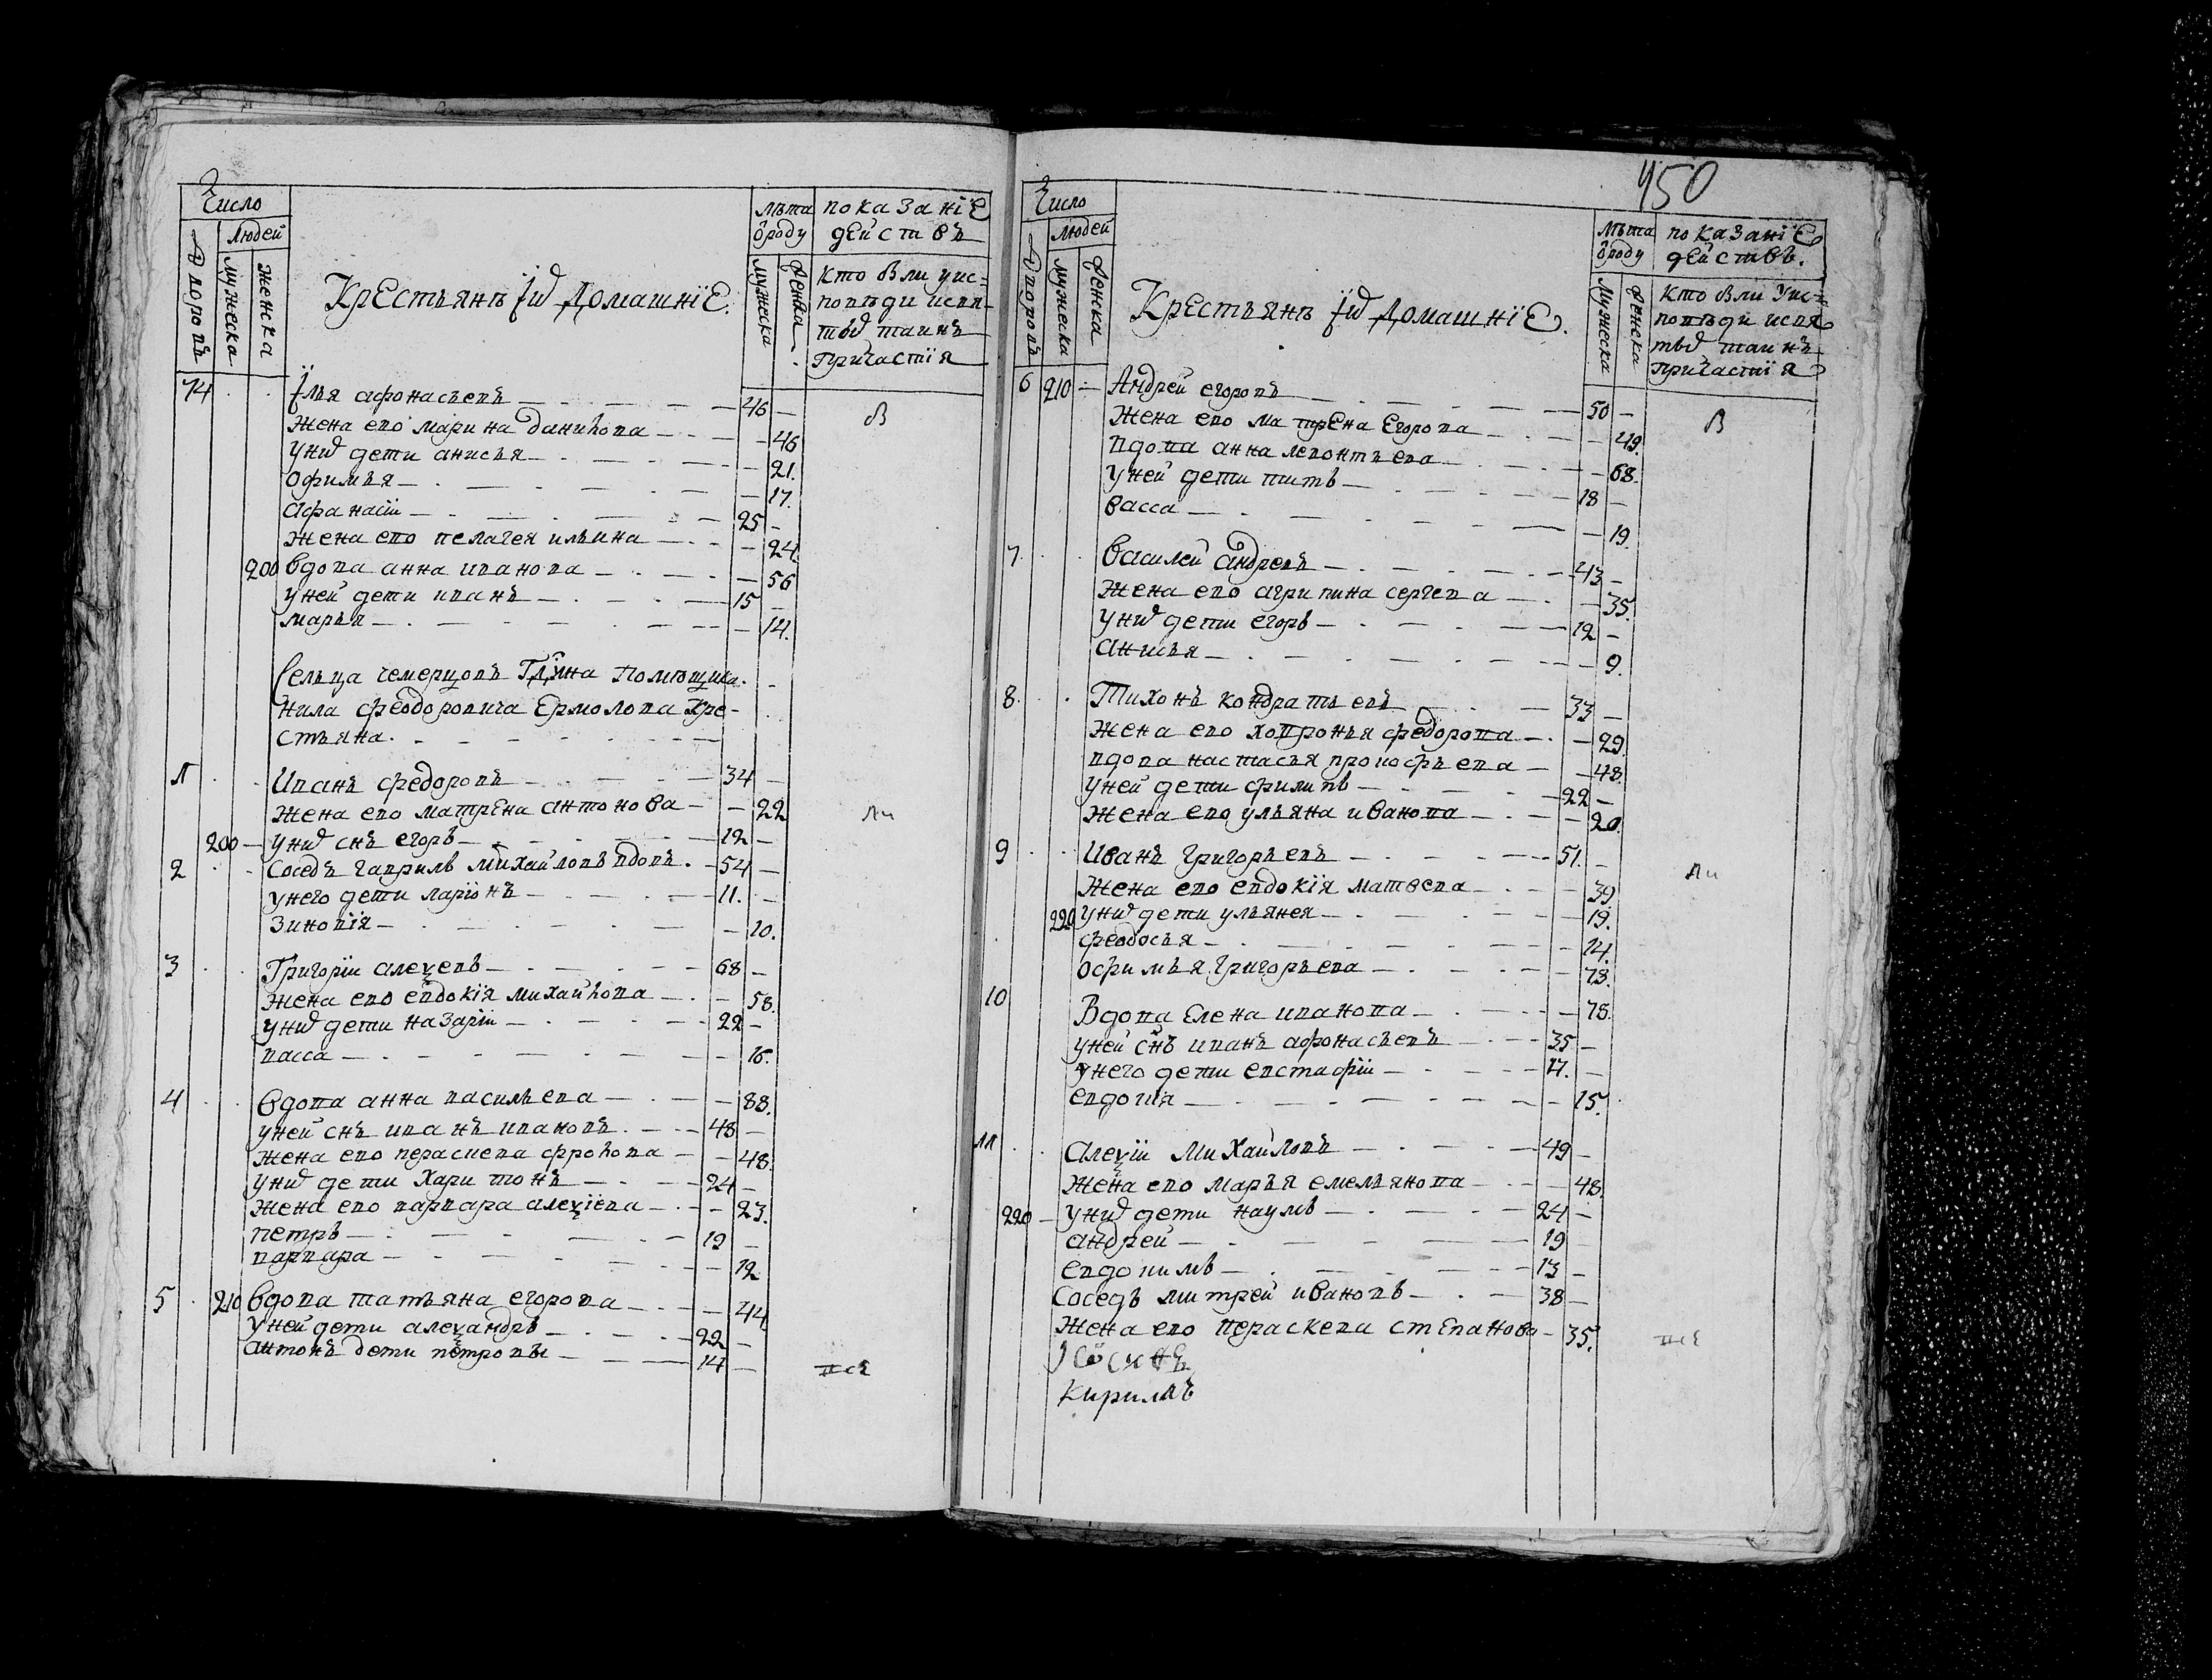 Число
Людей
Дворовъ
Мужеска
Женска
Крестьянъ їхъ Домашніе.
Лѣта
ѿроду
Мужеска
Женска
показаніе
действъ
Кто были уис-
поведи исвя-
тыхъ таинъ
Причастия
14 Їлья афонасьевъ 46
жена ево марина данилова 46
унихъ дети анисья 21.
офимья 17.
афанасіи 25
жена ево пелагея ильина 24
200 вдова анна иванова 56
уней дети иванъ 15
марья 14.
В
Сельца чемерцовъ Помѣщика
Нила феодоровича Ермолова Кре-
стьяна.
1 Иванъ федоровъ 34
жена ево матрена антонова 22
200 унихъ снъ егоръ 12
2 Соседъ гаврилъ михайловъ вдовъ 54
унего дети ларіонъ 11.
Зиновія 10.
ли
3 Григоріи алеѯевъ 68
жена ево евдокія михайлова 58.
унихъ дети назаріи 22
васса 16.
4 вдова анна васильева 88.
уней снъ иванъ ивановъ 48
жена ево пераскева фролова 48.
унихъ дети харитонъ 24
жена ево варвара алеѯіева 23.
петръ 19
варвара 12
5 210 вдова татьяна егорова 44
уней дети алеѯандръ 22
антонъ дети петровы 14
450
Число
Людей
Дворовъ
Мужеска
Женска
Крестьянъ їхъ Домашніе.
Лѣта
ѿроду
Мужеска
Женска
показаніе
действъ.
Кто были уис-
поведи исвя-
тыхъ таинъ
причастия
6 210 Андрей егоровъ 50
жена ево матрена Егорова 49.
вдова анна левонтьева 68.
уней дети титъ 18
васса 19.
В
7 Василей андревъ 43
жена ево агрипина сергева 35.
унихъ дети егоръ 12
Анисья 9.
8. Тихонъ кондратьевъ 33
жена ево ховронья федорова 29.
вдова настасья прокофьева 48.
уней дети филипъ 22
жена ево ульяна иванова 20.
9 Иванъ григорьевъ 51.
жена ево евдокія матвева 39.
220 унихъ дети ульянея 19.
феодосья 14.
офимья григорьева 78.
ли
10 Вдова Елена иванова 78.
уней снъ иванъ афонасьевъ 35
унего дети евстафіи 17.
15.
11 алеѯіи Михайловъ 49
жена ево марья емельянова 48.
220 унихъ дети наумъ 24
андрей 19
евдокимъ 13
Соседъ митрей ивановъ 38
жена ево пераскева степанова 35.
Кирилъ